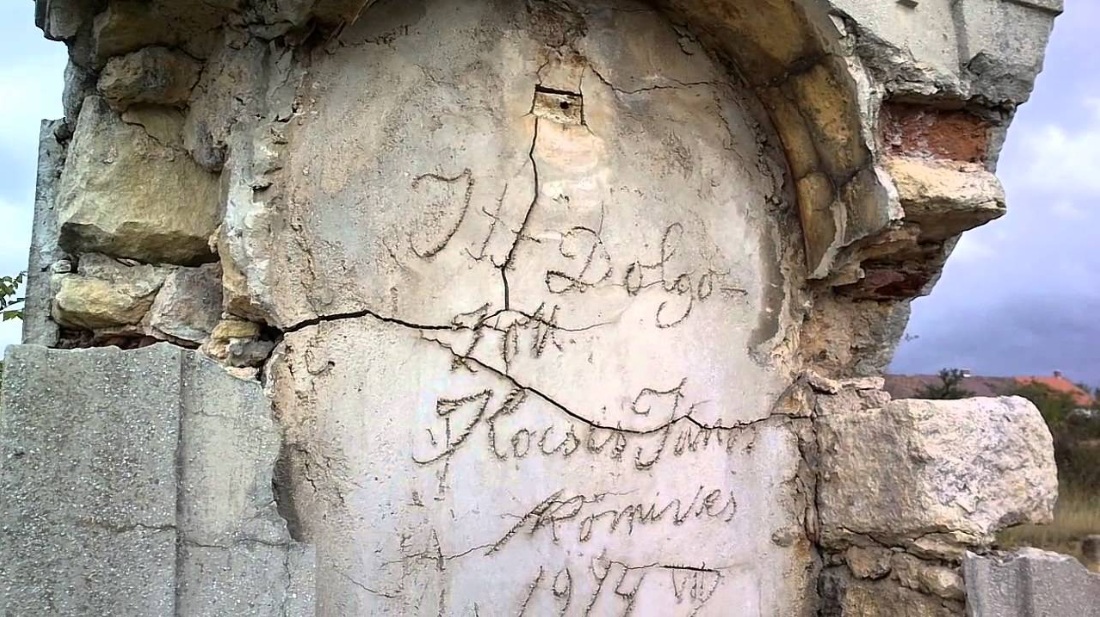 Itt Dolgo-
zott
Kocsis János
Kőmives
1944 VII